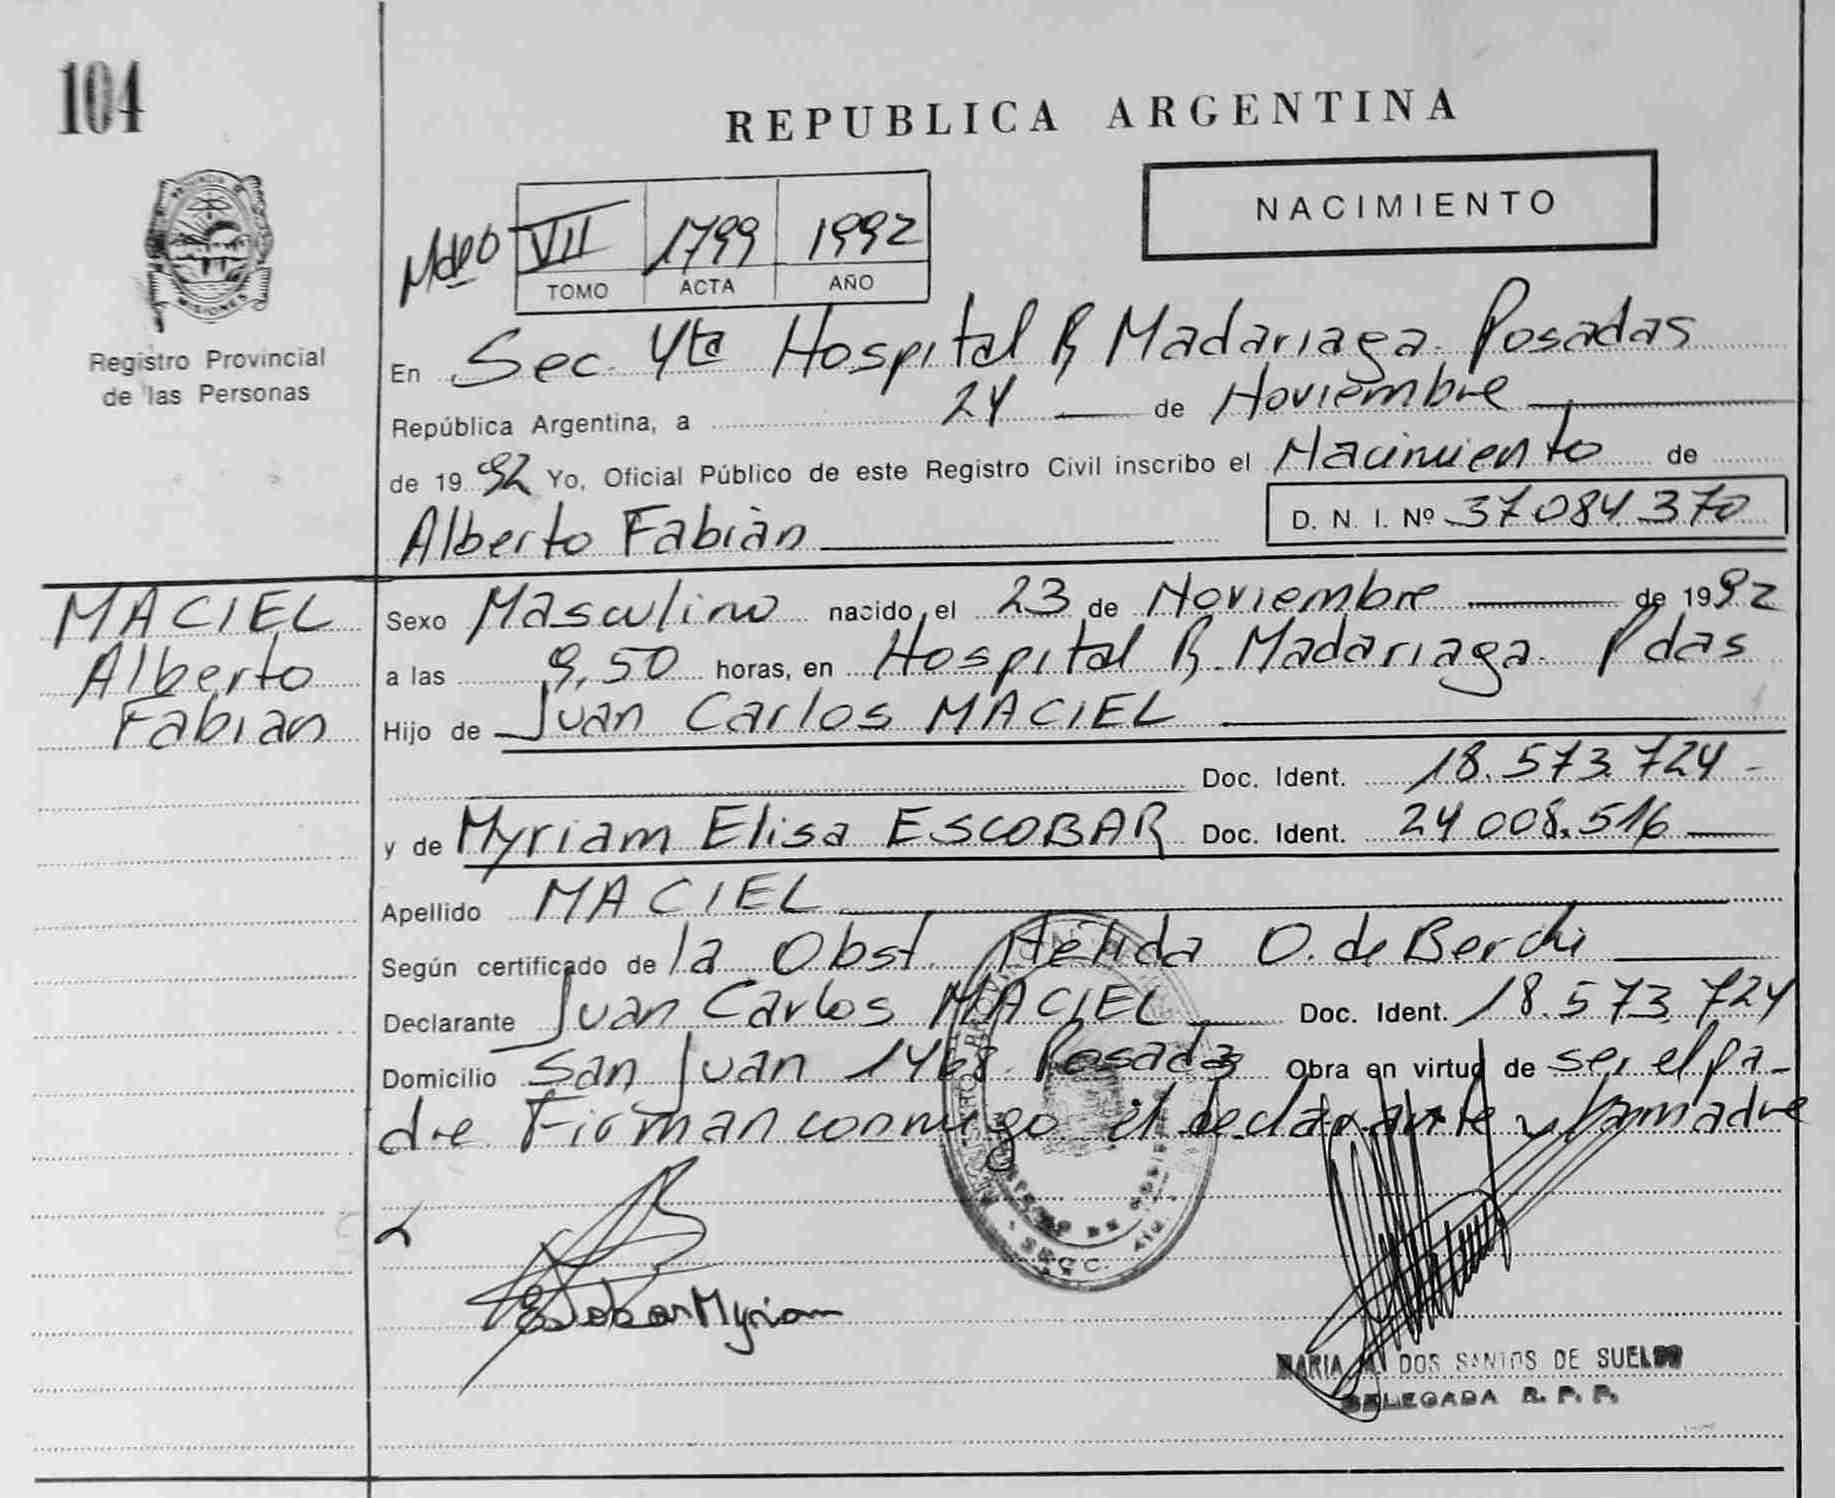 104
REPUBLICA ARGENTINA
PROVINCIA DE MISIONES
Registro Provincial
de las Personas
NACIMIENTO
VII 1799 1992
TOMO ACTA AÑO
En Sec. 4ta Hospital R Madariaga. Posadas
República Argentina, a 24 de Noviembre
de 1992 Yo, Oficial Público de este Registro Civil inscribo el Nacimiento de
Alberto Fabián D. N. I. Nº 37.084.370
MACIEL
Alberto
Fabian
Sexo Masculino nacido el 23 de Noviembre de 1992
a las 9,50 horas, en Hospital R. Madariaga. Pdas
Hijo de Juan Carlos MACIEL
Doc. Ident. 18.573.724
y de Myriam Elisa ESCOBAR Doc. Ident. 24.008.516
Apellido MACIEL
Según certificado de la Obst. Nélida O. de
Declarante Juan Carlos MACIEL Doc. Ident. 18.573.724
Domicilio San Juan 1468. Posadas Obra en virtud de ser el pa-
dre. Firman conmigo el declarante y la madre
Escobar Myriam
MARIA DOS SANTOS DE SUELDO
DELEGADA R. P. P.